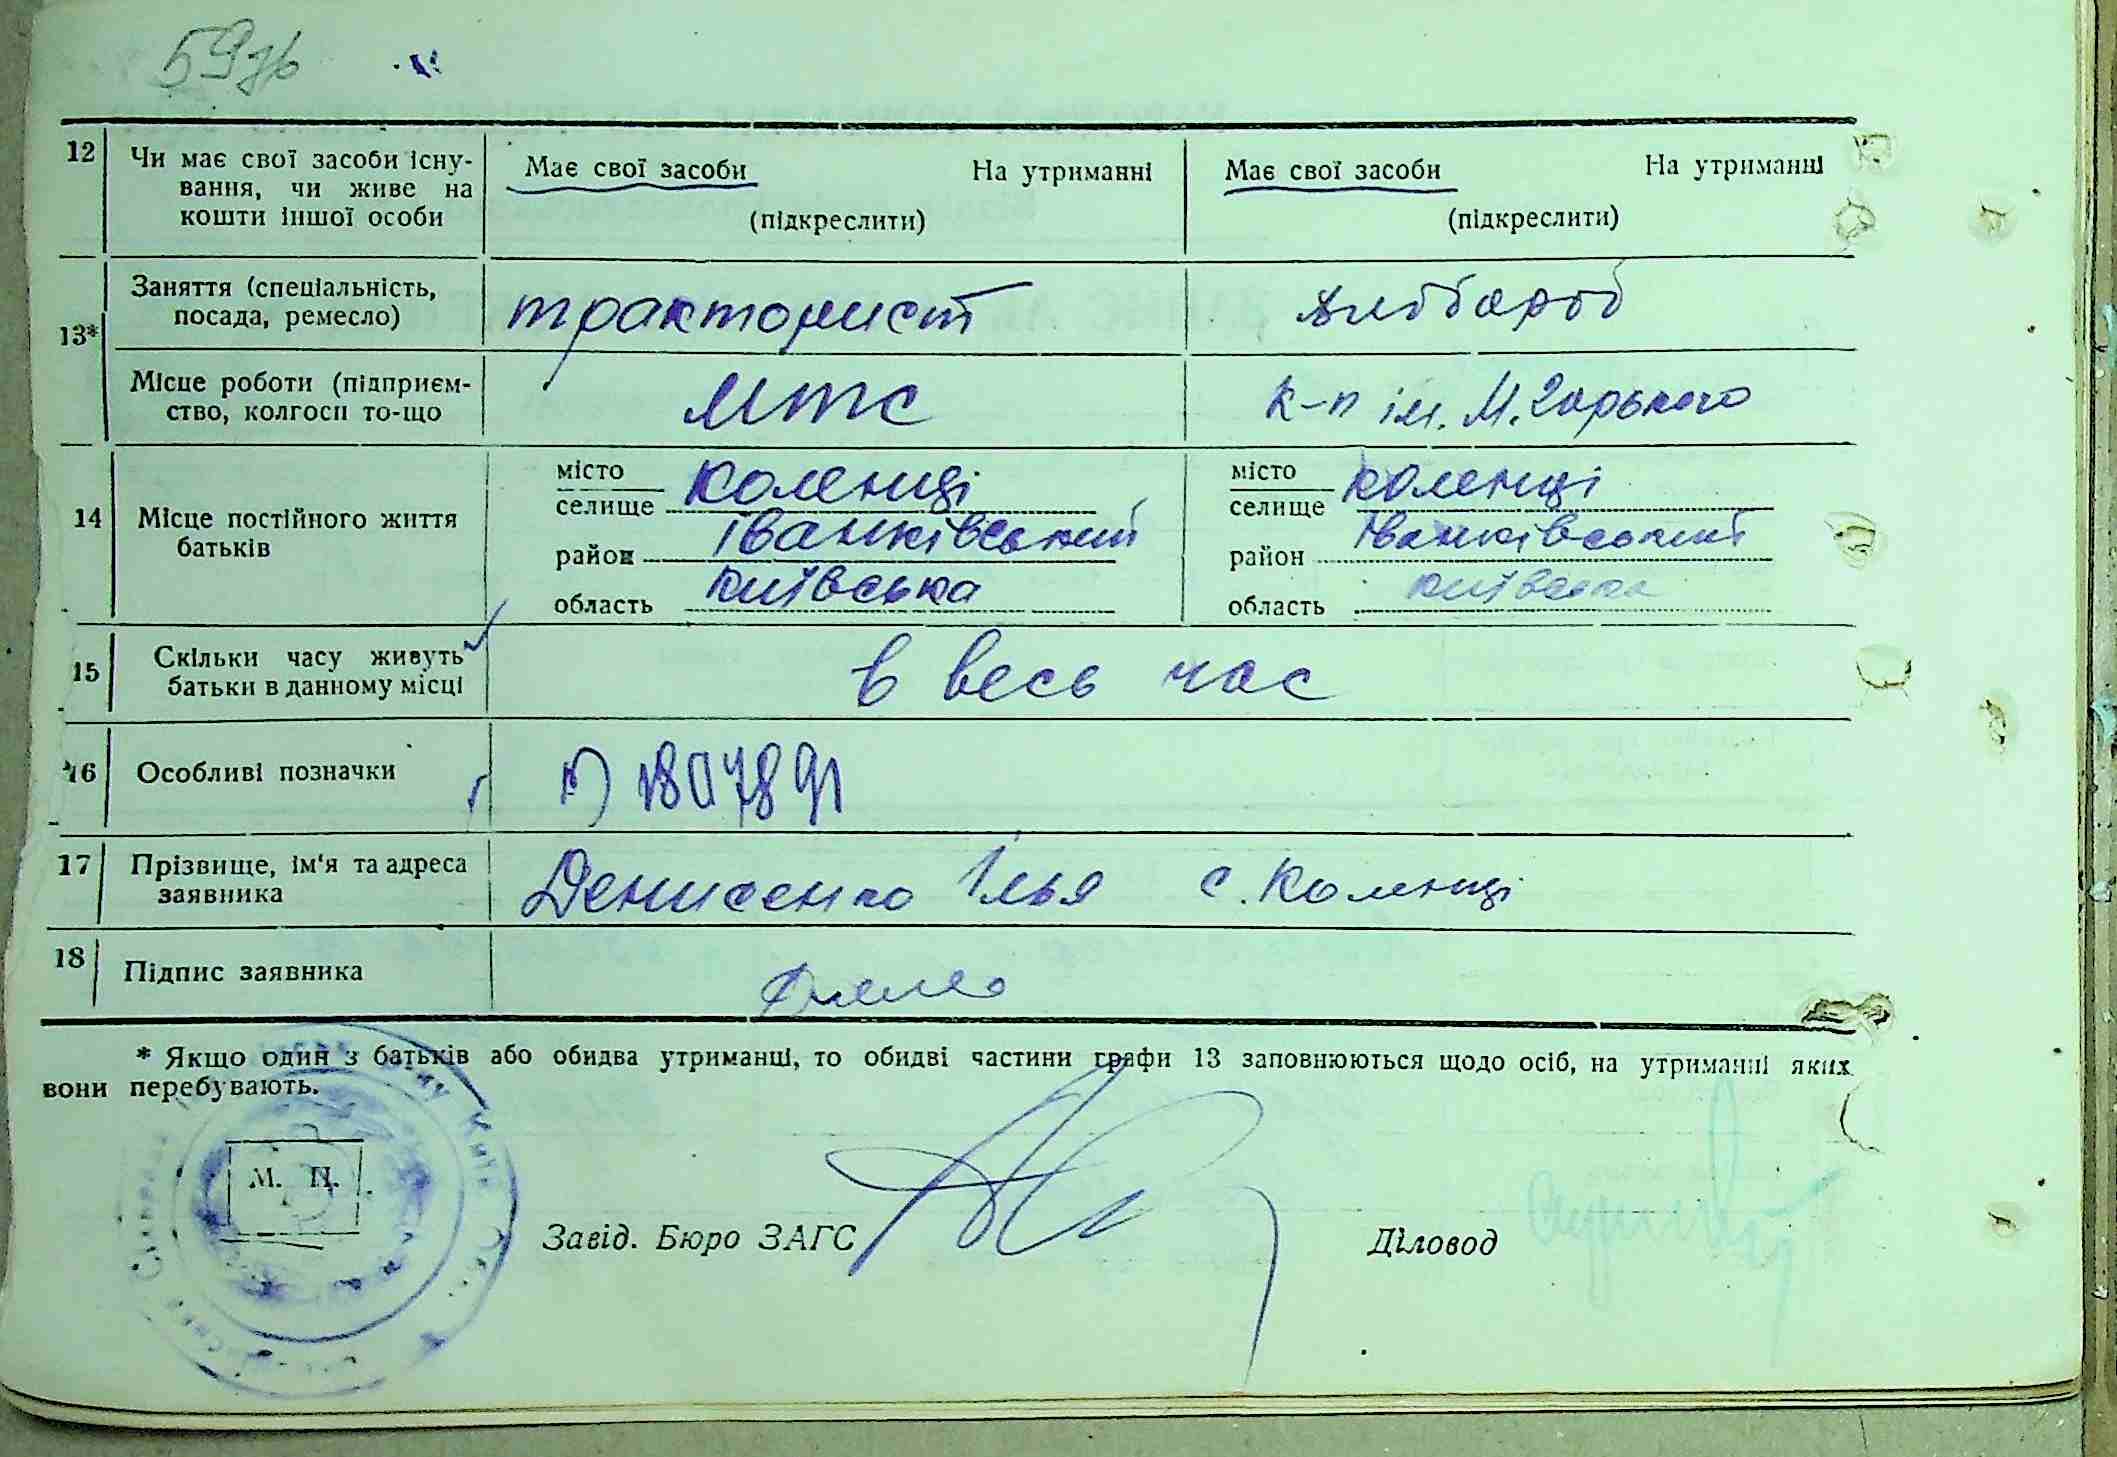 59зв
12 Чи має свої засоби існу-
вання, чи живе на
кошти іншої особи
Має свої засоби На утриманні
(підкреслити)
Має свої засоби На утриманні
(підкреслити)
13* Заняття (спеціальність,
посада, ремесло)
тракторист
хлібороб
Місце роботи (підприєм-
ство, колгосп то-що
МТС
к-п ім. М. Горького
14 Місце постійного життя
батьків
місто
селище Коленці
район Іванківський
область Київська
місто
селище Коленці
район Іванківський
область Київська
15 Скільки часу живуть
батьки в данному місці
в весь час
16 Особливі позначки
1807891
17 Прізвище, ім'я та адреса
заявника
Денисенко Ілья с. Коленці
18 Підпис заявника
* Якщо один з батьків або обидва утриманші, то обидві частини графи 13 заповнюються щодо осіб, на утриманні яких
вони перебувають.
М. П.
Завід. Бюро ЗАГС
Діловод